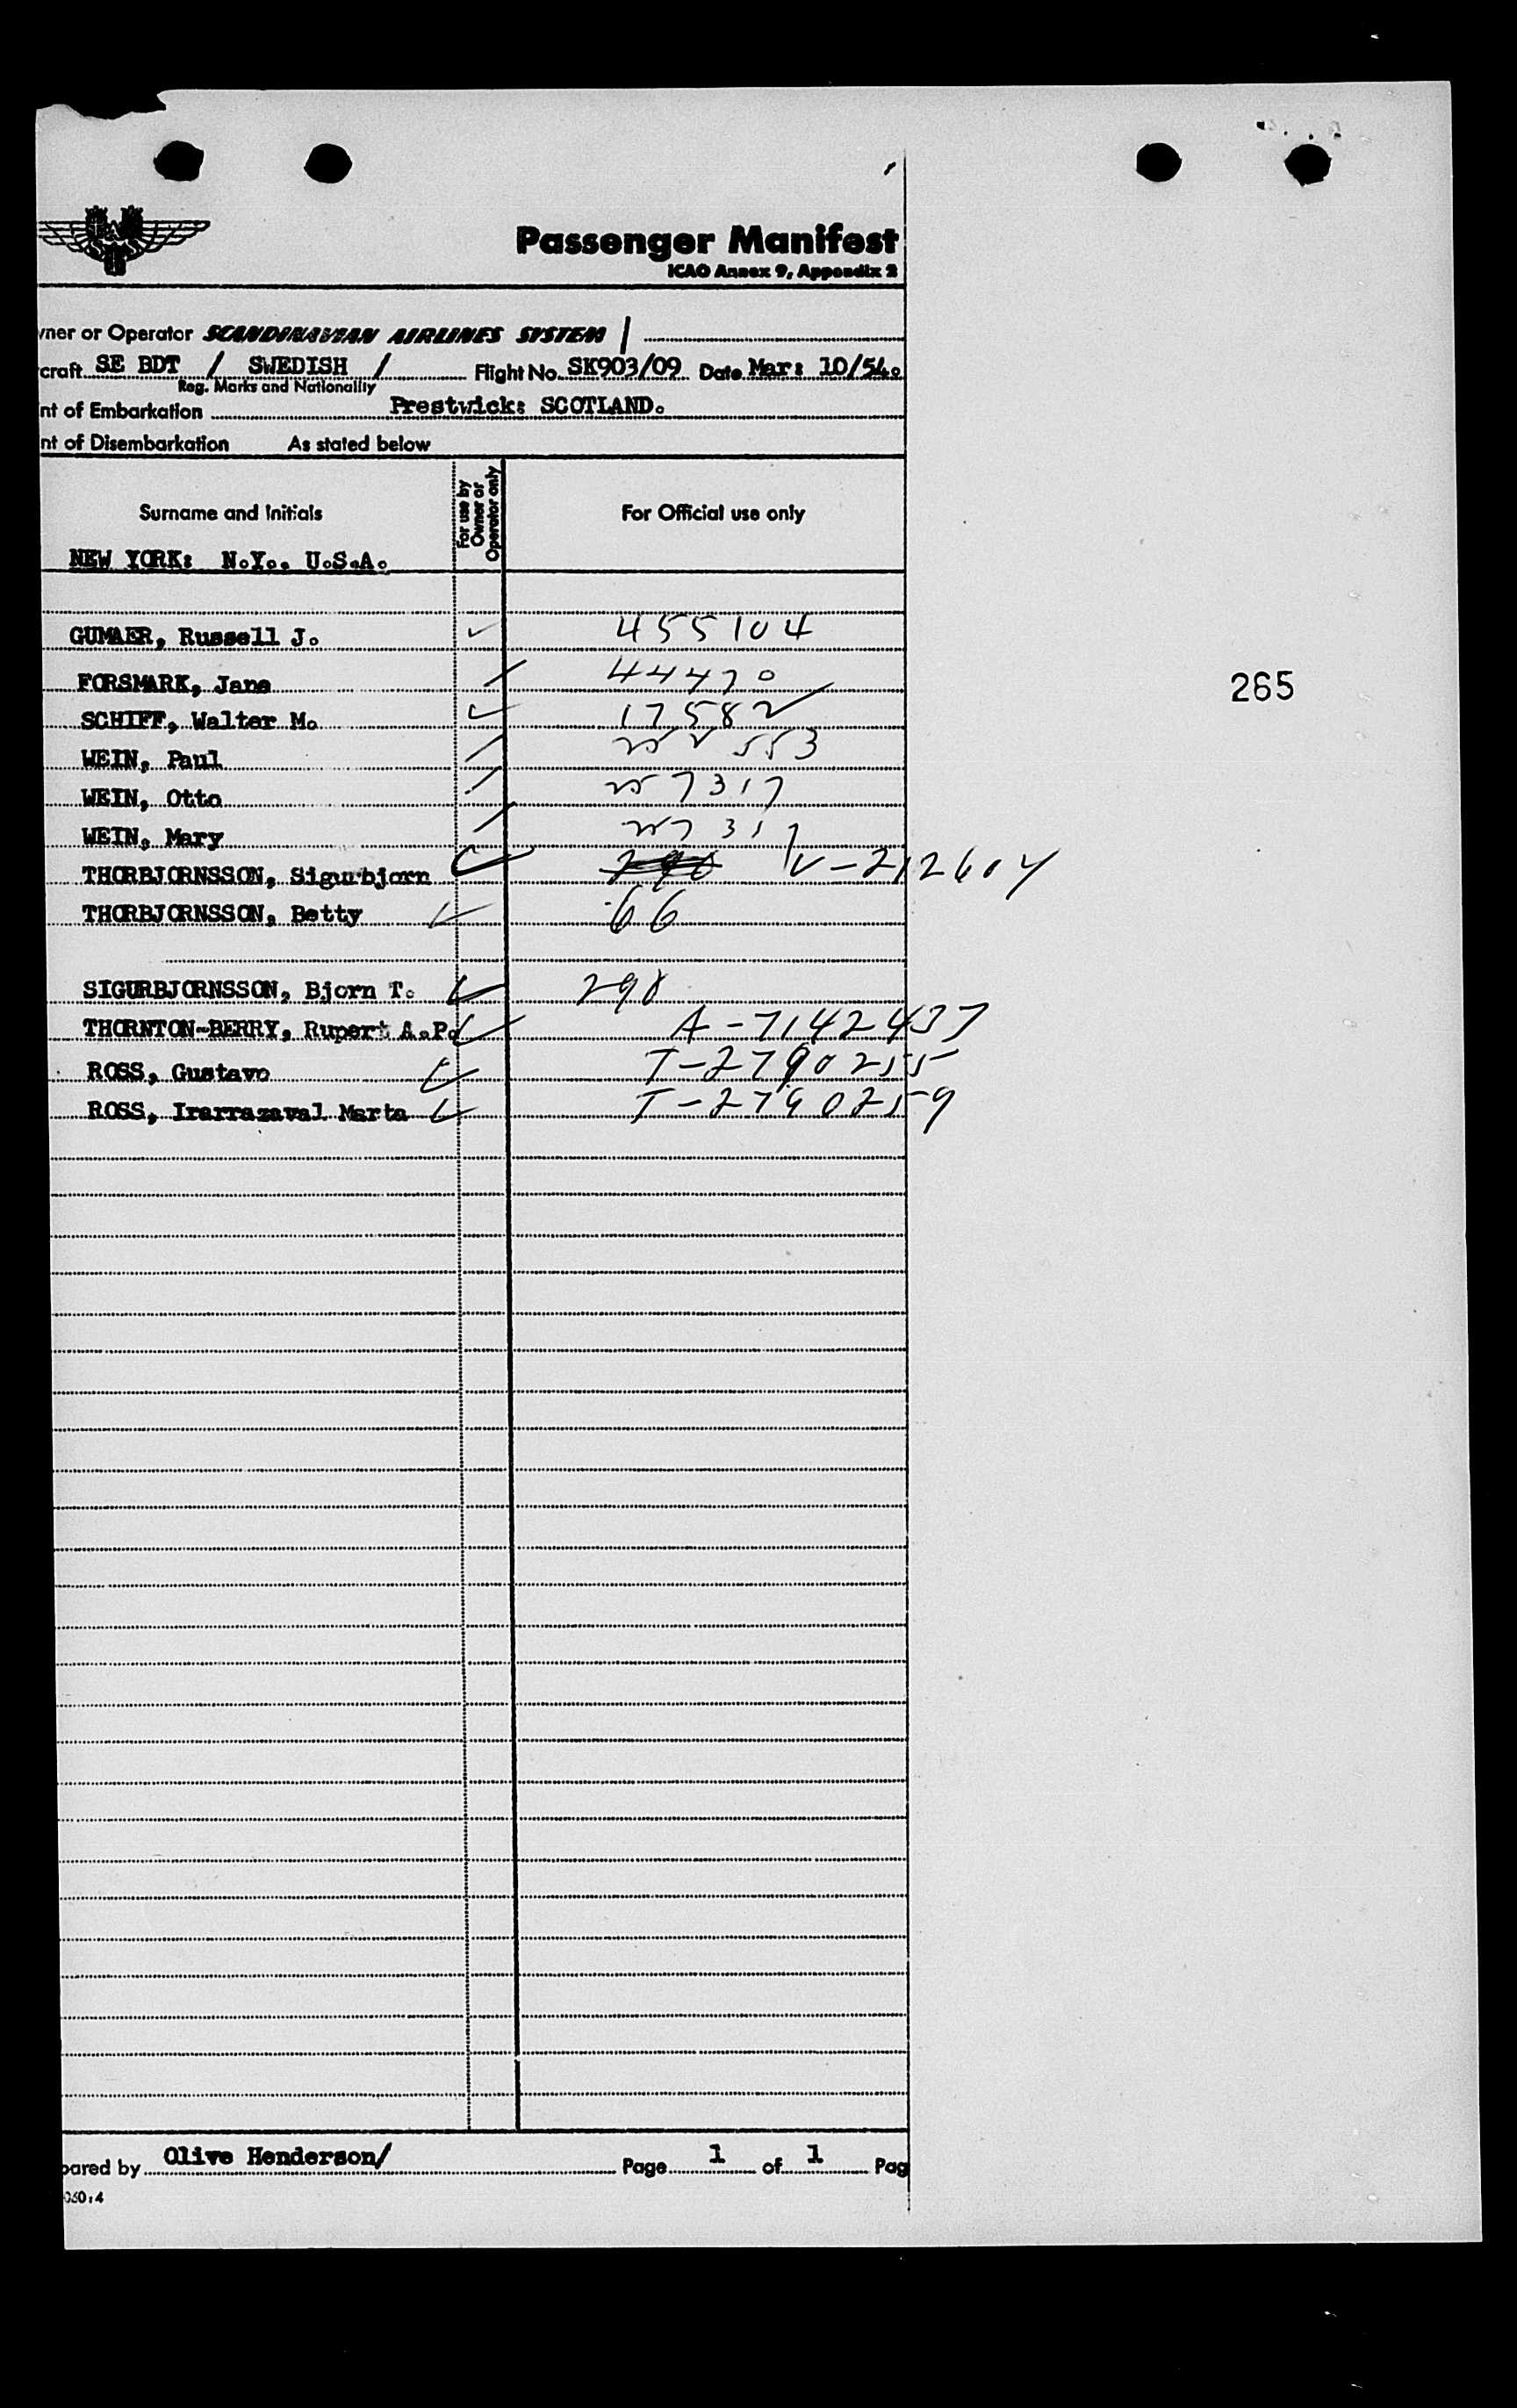 Passenger Manifest
ICAO Annex 9, Appendix 2
wner or Operator SCANDINAVIAN AIRLINES SYSTEM /
craft SE BDT / SWEDISH / Flight No. SK903/09 Date Mar: 10/54.
Reg. Marks and Nationality
nt of Embarkation Prestwick: SCOTLAND.
nt of Disembarkation As stated below
Surname and Initials
For use by Owner or Operator only
For Official use only
NEW YORK: N.Y.. U.S.A.
GUMAER, Russell J. 455104
FORSMARK, Jane 44470
265
SCHIFF, Walter M. 17582
WEIN, Paul
WEIN, Otto 257317
WEIN, Mary 257317
THORBJORNSSON, Sigurbjorn 290 V-212604
THORBJORNSSON, Betty 66
SIGURBJORNSSON, Bjorn T. 298
THORNTON-BERRY, Rupert A.P. A-7142437
ROSS, Gustavo T-2790255
ROSS, Irarrazaval Marta T-2790259
pared by Olive Henderson/ Page 1 of 1 Pag
060:4